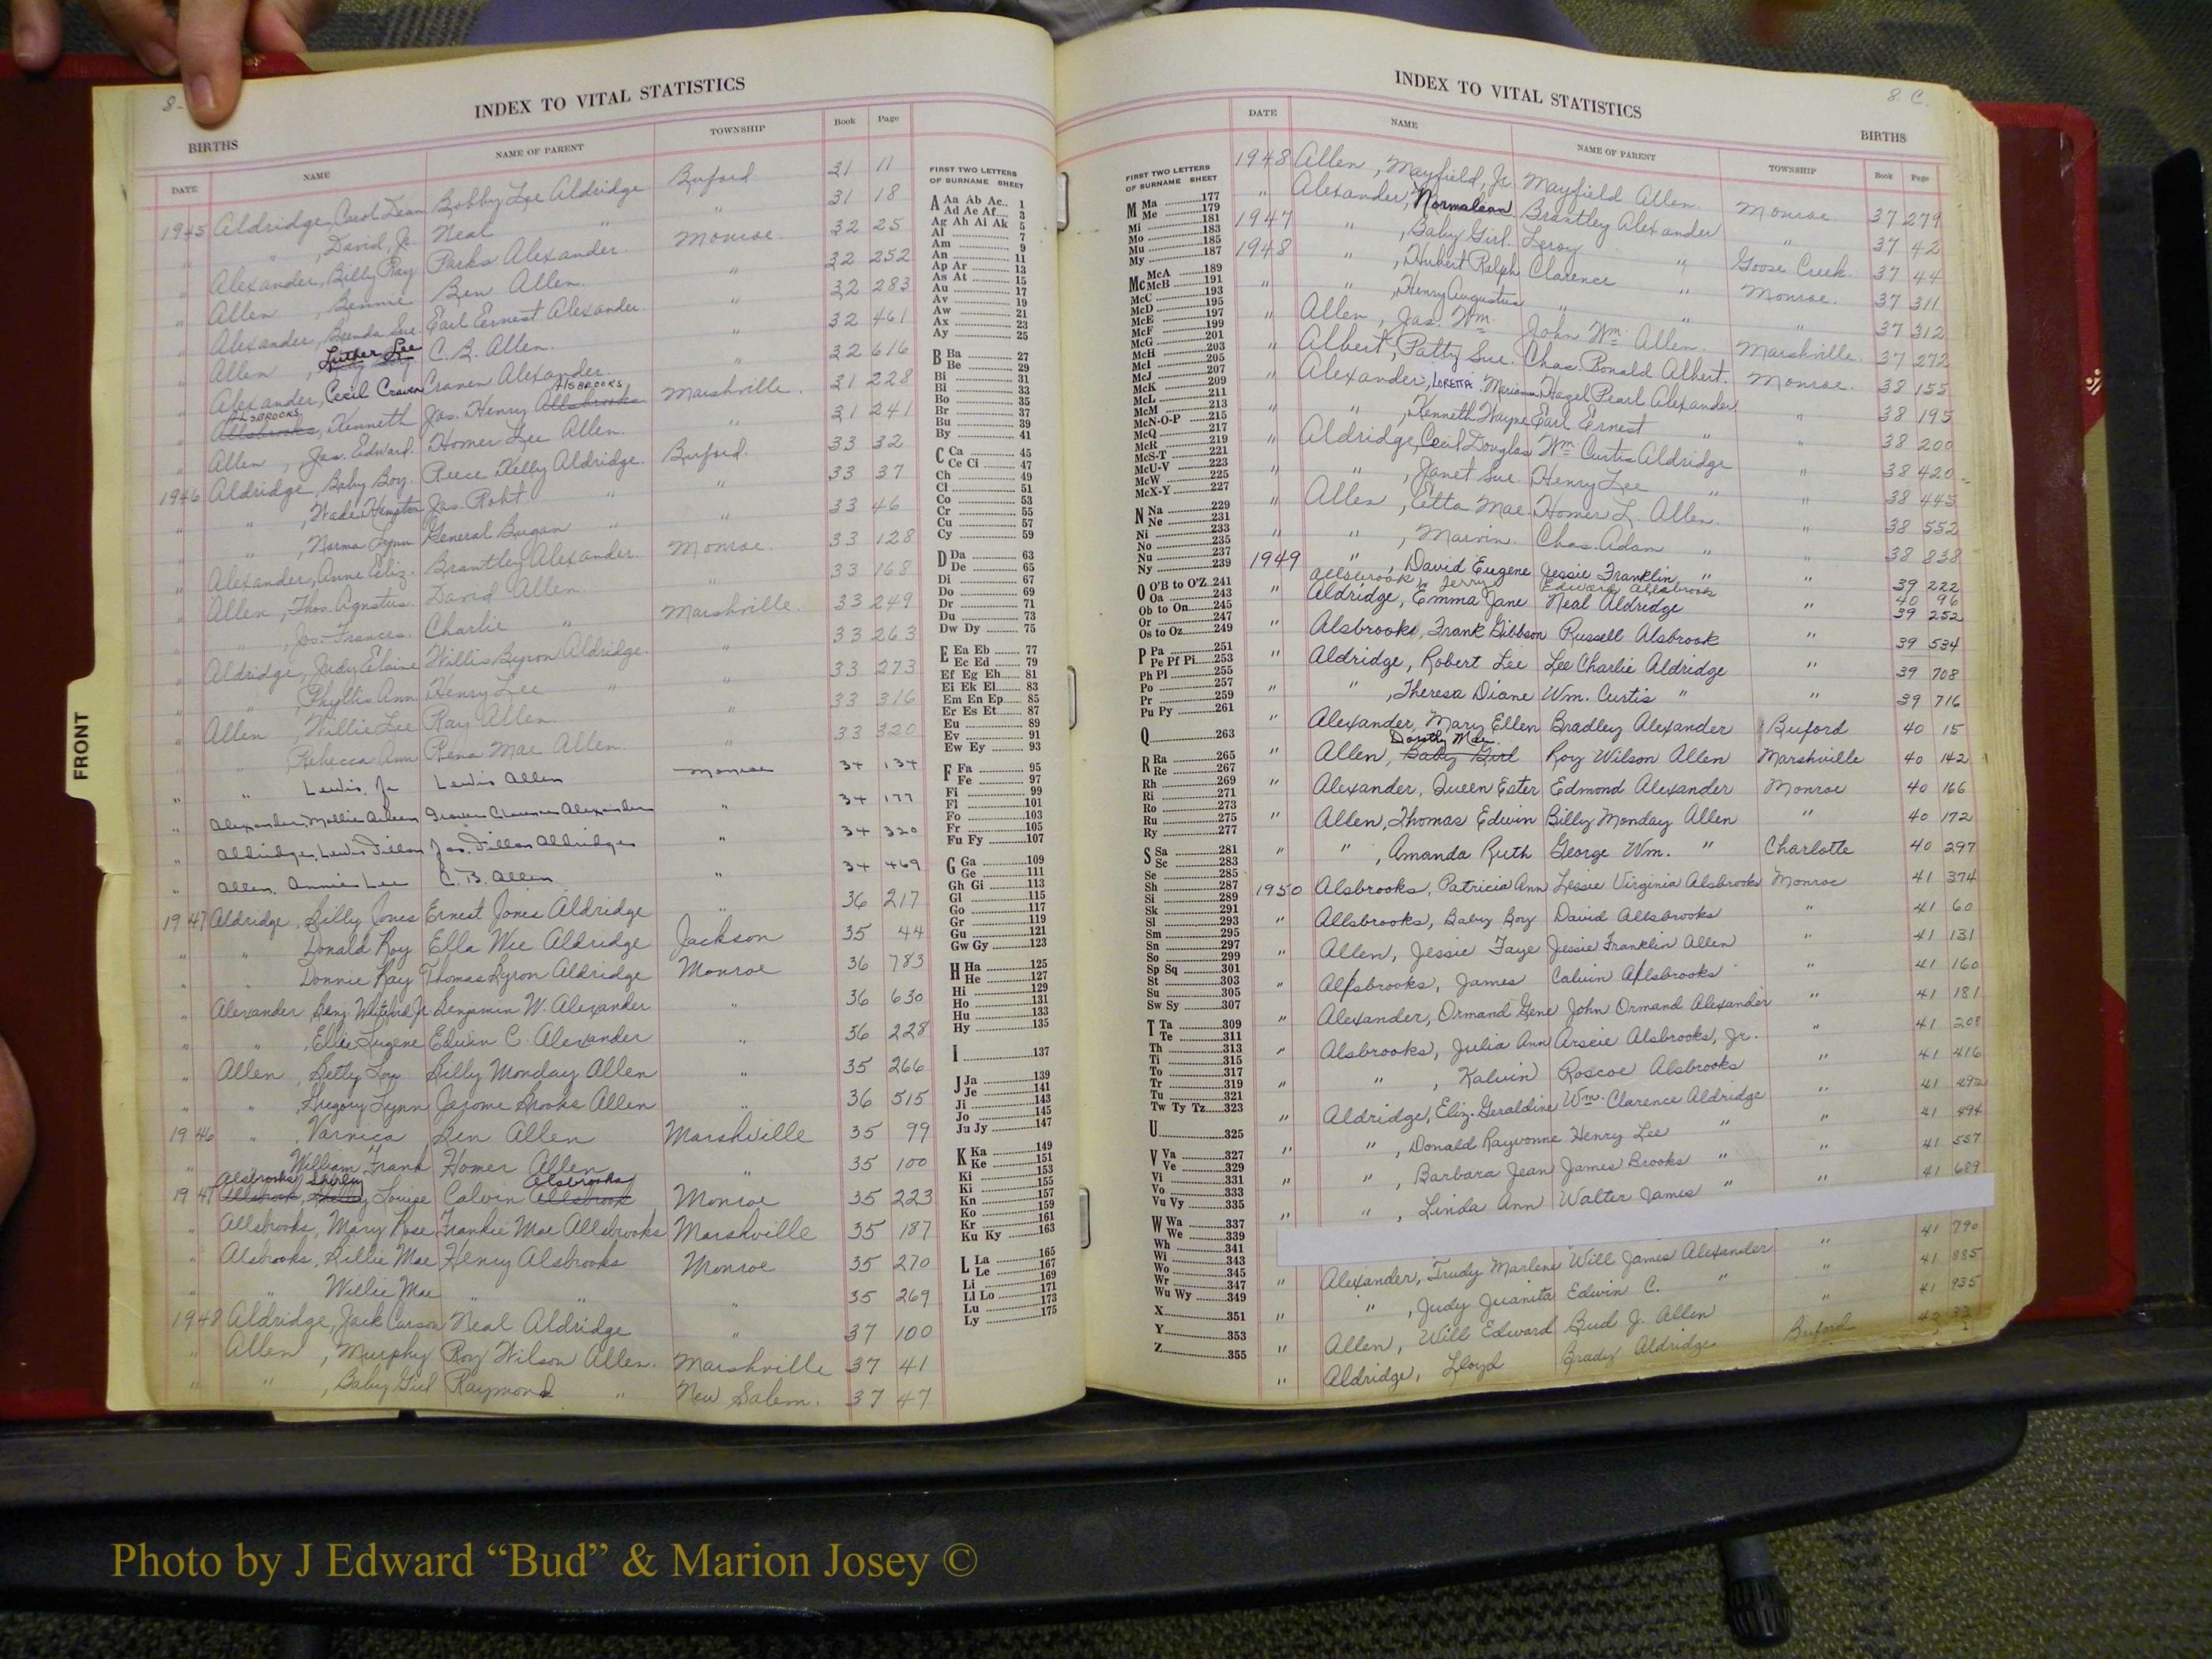 8-
INDEX TO VITAL STATISTICS
BIRTHS
DATE NAME NAME OF PARENT TOWNSHIP Book Page
1945 Aldridge, Carol Dean Bobby Lee Aldridge Buford 31 11
" " , David, Jr. Neal " " 31 18
" Alexander, Billy Ray Parks Alexander. Monroe. 32 25
" Allen , Bennie Ben Allen. " 32 252
" Alexander, Brenda Sue. Earl Ernest Alexander. " 32 283
" Allen , Luther Lee C. B. Allen. " 32 461
" Alexander, Cecil Craven Craven Alexander. " 32 616
" Allsbrooks ALSBROOKS, Kenneth Jas. Henry Allsbrooks ALSBROOKS Marshville. 31 228
" Allen , Jas. Edward. Homer Lee Allen. " 31 241
1946 Aldridge, Baby Boy. Reece Kelly Aldridge. Buford. 33 32
" " , Wade Hampton Jas. Robt. " " 33 37
" " , Norma Lynn General Bugan " " 33 46
" Alexander, Anne Eliz. Brantley Alexander. Monroe. 33 128
" Allen, Thos. Agustus. David Allen. " 33 168
" " , Jos. Frances. Charlie " Marshville. 33 249
" Aldridge, Judy Elaine Willis Byron Aldridge. " 33 263
" " Phyllis Ann Henry Lee " " 33 273
" Allen , Willie Lee Ray Allen. " 33 316
" " , Rebecca Ann Rena Mae Allen. " 33 320
" " Lewis, Jr Lewis Allen Monroe 34 134
" Alexander, Mollie Craven Alexander " 34 177
" Aldridge, Lewis Dillon Jas. Dillon Aldridge " 34 320
" Allen, Annie Lee C. B. Allen " 34 469
1947 Aldridge, Billy Jones Ernest Jones Aldridge " 36 217
" " Donald Roy Ella Wee Aldridge Jackson 35 44
" " Donnie Ray Thomas Byron Aldridge Monroe 36 783
" Alexander Benj. Whitford Jr Benjamin W. Alexander " 36 630
" " , Ellie Eugene Edwin C. Alexander " 36 228
" Allen , Betty Lou Billy Monday Allen " 35 266
" " , Gregory Lynn Jerome Brooks Allen " 36 515
1946 " , Varnica Ben Allen Marshville 35 99
" " William Frank Homer Allen " 35 100
1947 Alsbrooks Shirley Louise Calvin Allsbrook Alsbrooks Monroe 35 223
" Allsbrooks, Mary Rose Frankie Mae Allsbrooks Marshville 35 187
" Alsbrooks, Billie Mae Henry Alsbrooks Monroe 35 270
" " Willie Mae " " " 35 269
1948 Aldridge, Jack Carson Neal Aldridge " 37 100
" Allen , Murphy Roy Wilson Allen. Marshville 37 41
" " , Baby Girl Raymond " New Salem. 37 47
FIRST TWO LETTERS
OF SURNAME SHEET
A Aa Ab Ac 1
Ad Ae Af 3
Ag Ah Ai Ak 5
Al 7
Am 9
An 11
Ap Ar 13
As At 15
Au 17
Av 19
Aw 21
Ax 23
Ay 25
B Ba 27
Be 29
Bi 31
Bl 33
Bo 35
Br 37
Bu 39
By 41
C Ca 45
Ce Ci 47
Ch 49
Cl 51
Co 53
Cr 55
Cu 57
Cy 59
D Da 63
De 65
Di 67
Do 69
Dr 71
Du 73
Dw Dy 75
E Ea Eb 77
Ec Ed 79
Ef Eg Eh 81
Ei Ek El 83
Em En Ep 85
Er Es Et 87
Eu 89
Ev 91
Ew Ey 93
F Fa 95
Fe 97
Fi 99
Fl 101
Fo 103
Fr 105
Fu Fy 107
G Ga 109
Ge 111
Gh Gi 113
Gl 115
Go 117
Gr 119
Gu 121
Gw Gy 123
H Ha 125
He 127
Hi 129
Ho 131
Hu 133
Hy 135
I 137
J Ja 139
Je 141
Ji 143
Jo 145
Ju Jy 147
K Ka 149
Ke 151
Ki 153
Ki 155
Kn 157
Ko 159
Kr 161
Ku Ky 163
L La 165
Le 167
Li 169
Ll Lo 171
Lu 173
Ly 175
FRONT
8. C.
INDEX TO VITAL STATISTICS
BIRTHS
DATE NAME NAME OF PARENT TOWNSHIP Book Page
FIRST TWO LETTERS
OF SURNAME SHEET
M Ma 177
Me 179
Mi 181
Mo 183
Mu 185
My 187
Mc McA 189
McB 191
McC 193
McD 195
McE 197
McF 199
McG 201
McH 203
McI 205
McJ 207
McK 209
McL 211
McM 213
McN-O-P 215
McQ 217
McR 219
McS-T 221
McU-V 223
McW 225
McX-Y 227
N Na 229
Ne 231
Ni 233
No 235
Nu 237
Ny 239
O O'B to O'Z 241
Oa 243
Ob to On 245
Or 247
Os to Oz 249
P Pa 251
Pe Pf Pi 253
Ph Pl 255
Po 257
Pr 259
Pu Py 261
Q 263
R Ra 265
Re 267
Rh 269
Ri 271
Ro 273
Ru 275
Ry 277
S Sa 281
Sc 283
Se 285
Sh 287
Si 289
Sk 291
Sl 293
Sm 295
Sn 297
So 299
Sp Sq 301
St 303
Su 305
Sw Sy 307
T Ta 309
Te 311
Th 313
Ti 315
To 317
Tr 319
Tu 321
Tw Ty Tz 323
U 325
V Va 327
Ve 329
Vi 331
Vo 333
Vu Vy 335
W Wa 337
We 339
Wh 341
Wi 343
Wo 345
Wr 347
Wu Wy 349
X 351
Y 353
Z 355
1948 Allen , Mayfield, Jr. Mayfield Allen. Monroe. 37 279
" Alexander, Normalean Brantley Alexander " 37 42
1947 " , Baby Girl. Leroy " Goose Creek. 37 44
1948 " , Hubert Ralph Clarence " Monroe. 37 311
" " , Henry Augustus " " " 37 312
" Allen , Jas. Wm. John Wm. Allen. Marshville. 37 272
" Albert, Patty Sue. Chas. Ronald Albert. Monroe. 38 155
" Alexander, LORETTA Hazel Pearl Alexander " 38 195
" " , Kenneth Wayne Earl Ernest " " 38 200
" Aldridge, Cecil Douglas Wm. Curtis Aldridge " 38 420
" " , Janet Sue. Henry Lee " " 38 445
" Allen , Etta Mae. Homer L. Allen. " 38 552
" " , Marvin. Chas. Adam " " 38 838
1949 " , David Eugene Jessie Franklin " " 39 222
Allsbrook, Jerry Edward Allsbrook 40 96
" Aldridge, Emma Jane Neal Aldridge " 39 252
" Alsbrooks, Frank Gibbson Russell Alsbrook " 39 534
" Aldridge, Robert Lee Lee Charlie Aldridge " 39 708
" " , Theresa Diane Wm. Curtis " " 39 716
" Alexander, Mary Ellen Bradley Alexander Buford 40 15
" Allen, Baby Girl Dorothy Mae Roy Wilson Allen Marshville 40 142
" Alexander, Queen Ester Edmond Alexander Monroe 40 166
" Allen, Thomas Edwin Billy Monday Allen " 40 172
" " , Amanda Ruth George Wm. " Charlotte 40 297
1950 Alsbrooks, Patricia Ann Lessie Virginia Alsbrooks Monroe 41 374
" Allsbrooks, Baby Boy David Allsbrooks " 41 60
" Allen, Jessie Faye Jessie Franklin Allen " 41 131
" Alsbrooks, James Calvin Alsbrooks " 41 160
" Alexander, Ormand Gene John Ormand Alexander " 41 181
" Alsbrooks, Julia Ann Arscie Alsbrooks, Jr. " 41 208
" " , Kalvin Roscoe Alsbrooks " 41 416
" Aldridge, Eliz. Geraldine Wm. Clarence Aldridge " 41 492
" " , Donald Rayvonne Henry Lee " " 41 494
" " , Barbara Jean James Brooks " " 41 557
" " , Linda Ann Walter James " " 41 689
" Alexander, Trudy Marlene Will James Alexander " 41 790
" " , Judy Juanita Edwin C. " " 41 885
" Allen, Will Edward Bud J. Allen " 41 935
" Aldridge, Lloyd Brady Aldridge Buford 42 33
Photo by J Edward “Bud” & Marion Josey ©